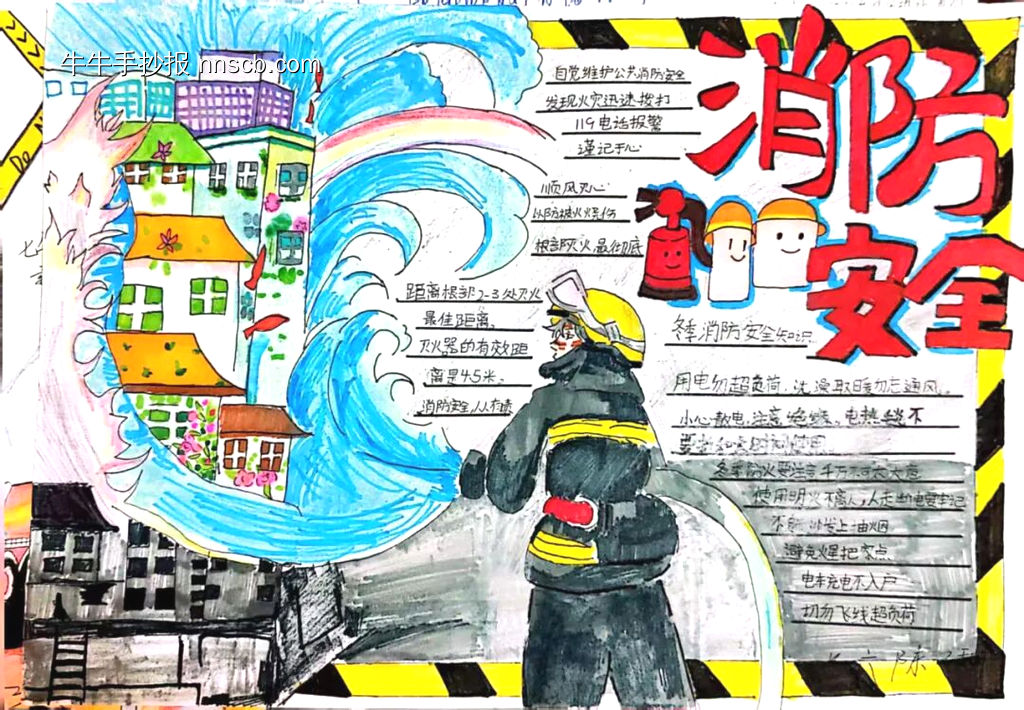 牛牛手抄报 nnscb.com
消防
安全
自觉维护公共消防安全
发现火灾迅速拨打
119电话报警
谨记于心
顺风灭火
以防被火烧伤
根部灭火,最彻底
距离根部2-3处灭火
最佳距离。
灭火器的有效距
离是4.5米。
消防安全,人人有责
冬季消防安全知识
用电勿超负荷,洗澡取暖勿忘通风。
小心散电,注意绝缘。电热毯不
冬季防火要注意千万不可太大意
使用明火不离人,人走断电要牢记
不能沙发上抽烟
避免火星把家点
电车充电不入户
切勿飞线超负荷